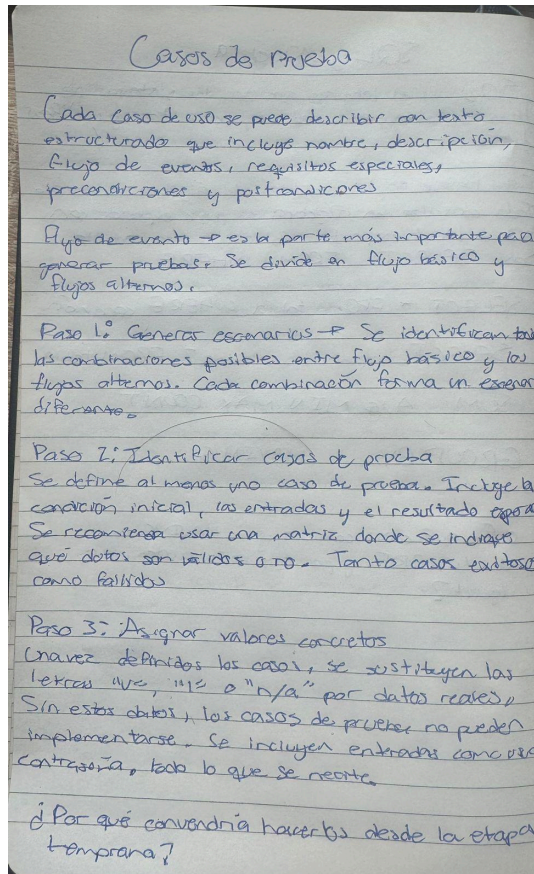 Casos de Prueba
Cada caso de uso se puede describir con texto
estructurado que incluye nombre, descripción,
flujo de eventos, requisitos especiales,
precondiciones y postcondiciones
Flujo de evento → es la parte más importante para
generar pruebas. Se divide en flujo básico y
flujos alternos.
Paso 1: Generar escenarios → Se identifican
las combinaciones posibles entre flujo básico y los
flujos alternos. Cada combinación forma un
diferente.
Paso 2: Identificar casos de prueba
Se define al menos uno caso de prueba. Incluye la
condición inicial, las entradas y el resultado
Se recomienda usar una matriz donde se indique
qué datos son válidos o no. Tanto casos
como fallidos
Paso 3: Asignar valores concretos
Una vez definidos los casos, se sustituyen las
letras "v", "i" o "n/a" por datos reales,
Sin estos datos, los casos de prueba no pueden
implementarse. Se incluyen entradas como
contraseña, todo lo que se necite.
¿Por qué convendría hacerlos desde la etapa
temprana?